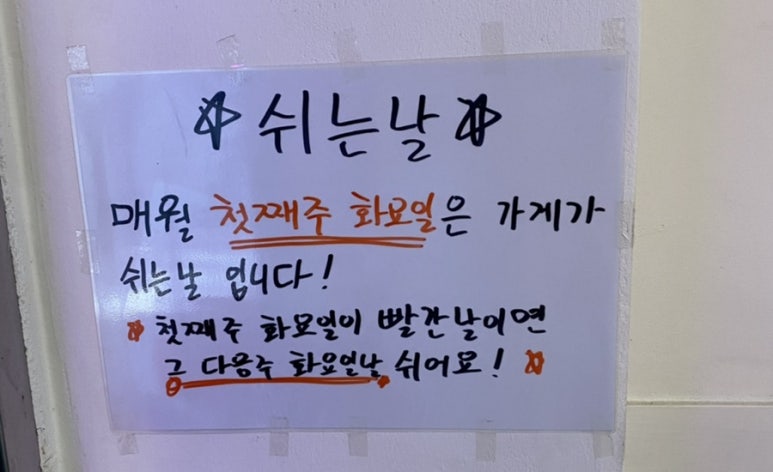 ☆ 쉬는날 ☆
매월 첫째주 화요일은 가게가
쉬는날 입니다!
☆ 첫째주 화요일이 빨간날이면
그 다음주 화요일날 쉬어요! ☆